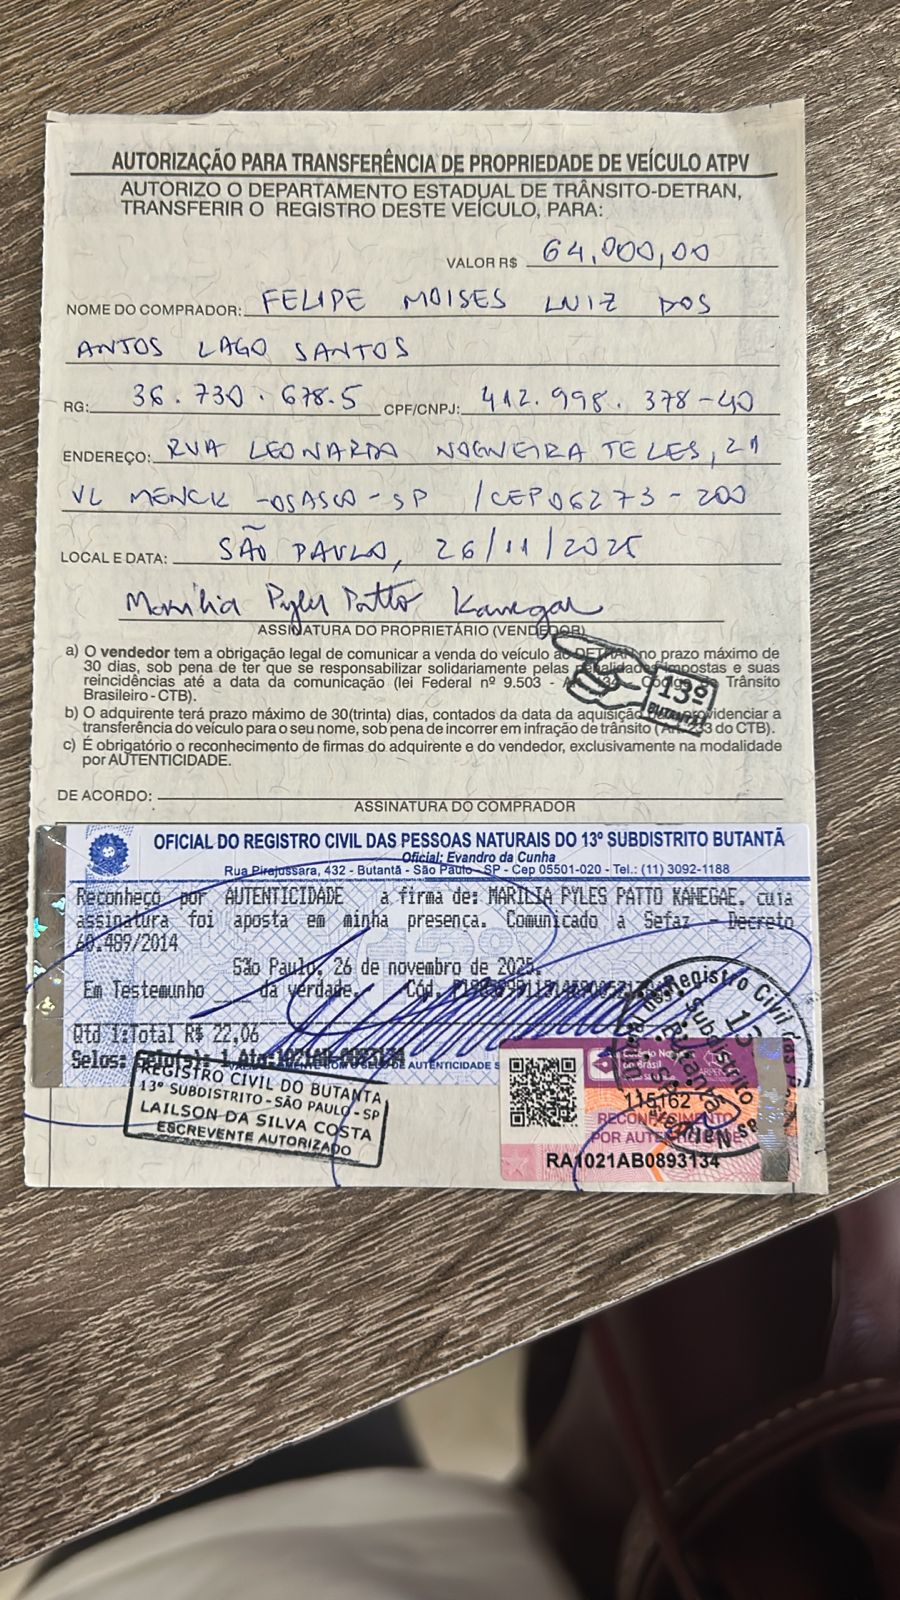 AUTORIZAÇÃO PARA TRANSFERÊNCIA DE PROPRIEDADE DE VEÍCULO ATPV
AUTORIZO O DEPARTAMENTO ESTADUAL DE TRÂNSITO-DETRAN,
TRANSFERIR O REGISTRO DESTE VEÍCULO, PARA:
VALOR R$ 64.000,00
NOME DO COMPRADOR: FELIPE MOISES LUIZ DOS
ANJOS LAGO SANTOS
RG: 36.730.678.5 CPF/CNPJ: 412.998.378-40
ENDEREÇO: RUA LEONARDA NOGUEIRA TELES, 21
VL MENCK -OSASCO-SP /CEP 06273-200
LOCAL E DATA: SÃO PAULO, 26/11/2025
Marilia Pyles Patto Kanegae
ASSINATURA DO PROPRIETÁRIO (VENDEDOR)
a) O vendedor tem a obrigação legal de comunicar a venda do veículo ao DETRAN no prazo máximo de
30 dias, sob pena de ter que se responsabilizar solidariamente pelas penalidades impostas e suas
reincidências até a data da comunicação (lei Federal nº 9.503 - Código de Trânsito
Brasileiro - CTB).
13º
BUTANTÃ
b) O adquirente terá prazo máximo de 30(trinta) dias, contados da data da aquisição providenciar a
transferência do veículo para o seu nome, sob pena de incorrer em infração de trânsito (Art. 233 do CTB).
c) É obrigatório o reconhecimento de firmas do adquirente e do vendedor, exclusivamente na modalidade
por AUTENTICIDADE.
DE ACORDO:
ASSINATURA DO COMPRADOR
OFICIAL DO REGISTRO CIVIL DAS PESSOAS NATURAIS DO 13º SUBDISTRITO BUTANTÃ
Oficial: Evandro da Cunha
Rua Pirajussara, 432 - Butantã - São Paulo - SP - Cep 05501-020 - Tel.: (11) 3092-1188
Reconheço por AUTENTICIDADE a firma de: MARILIA PYLES PATTO KANEGAE, cuja
assinatura foi aposta em minha presença. Comunicado à Sefaz - Decreto
60.489/2014
São Paulo, 26 de novembro de 2025.
Em Testemunho ___ da verdade. Cód.
Qtd 1:Total R$ 22,06
Selos: Selo(s): 1 Ato:1021AB-0893134
REGISTRO CIVIL DO BUTANTA
13º SUBDISTRITO - SÃO PAULO - SP
LAILSON DA SILVA COSTA
ESCREVENTE AUTORIZADO
115162
RECONHECIMENTO
POR AUTENTICIDADE
RA1021AB0893134